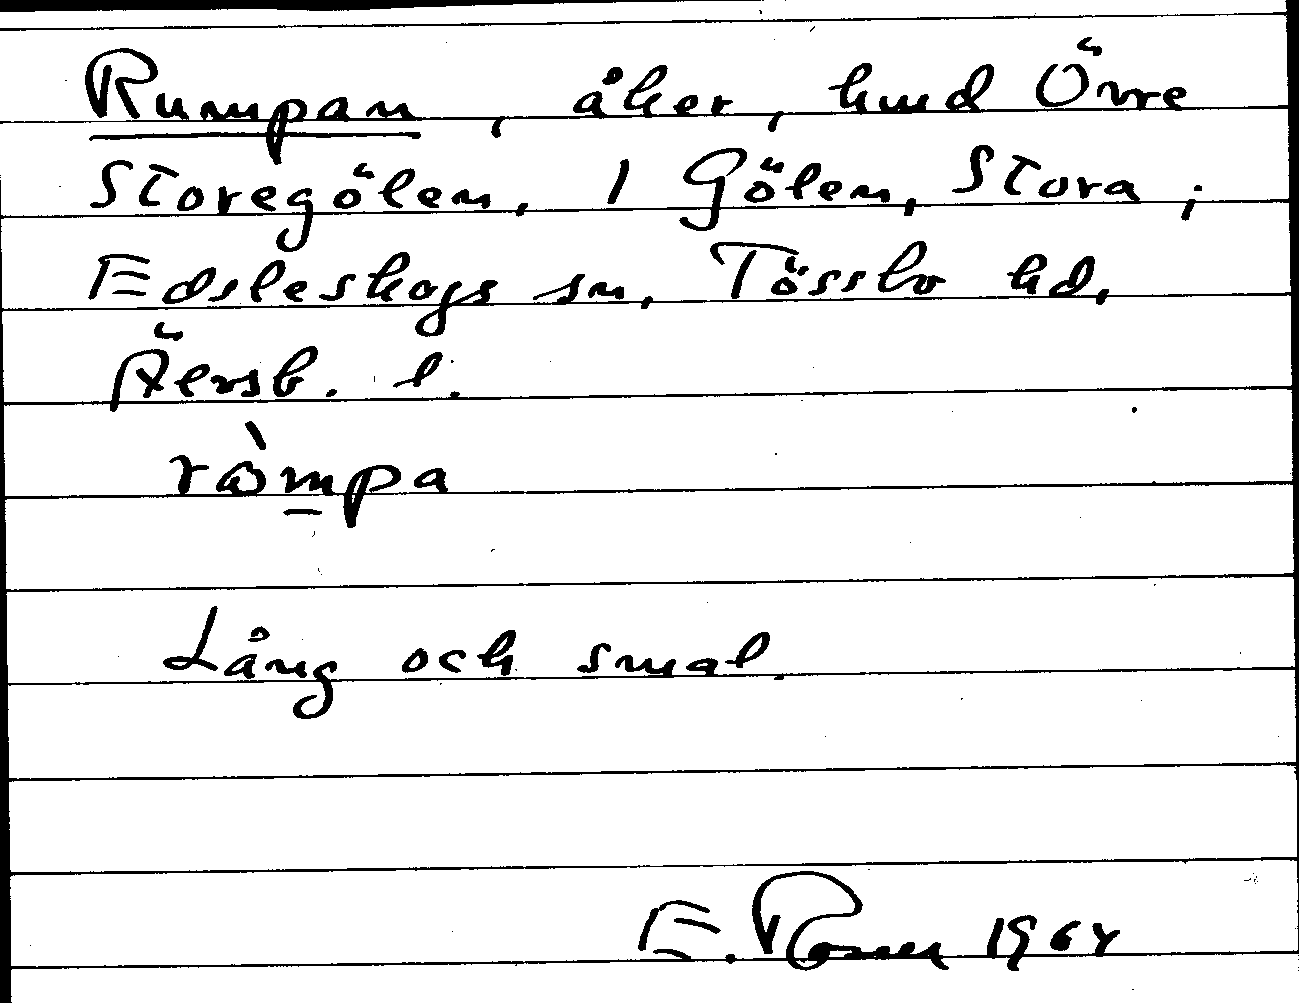 Rumpan, åker, hmd Övre
Storegölen, 1 Gölen, Stora,
Edsleskogs sn, Tössbo hd,
Älvsb. l.
ròmpa
Lång och smal.
E. Rosen 1964